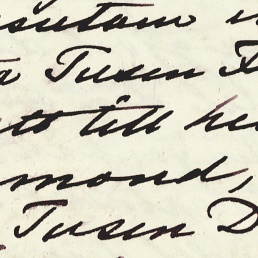 sutam
a Tusen F
ett till he
mond,
Tusen D